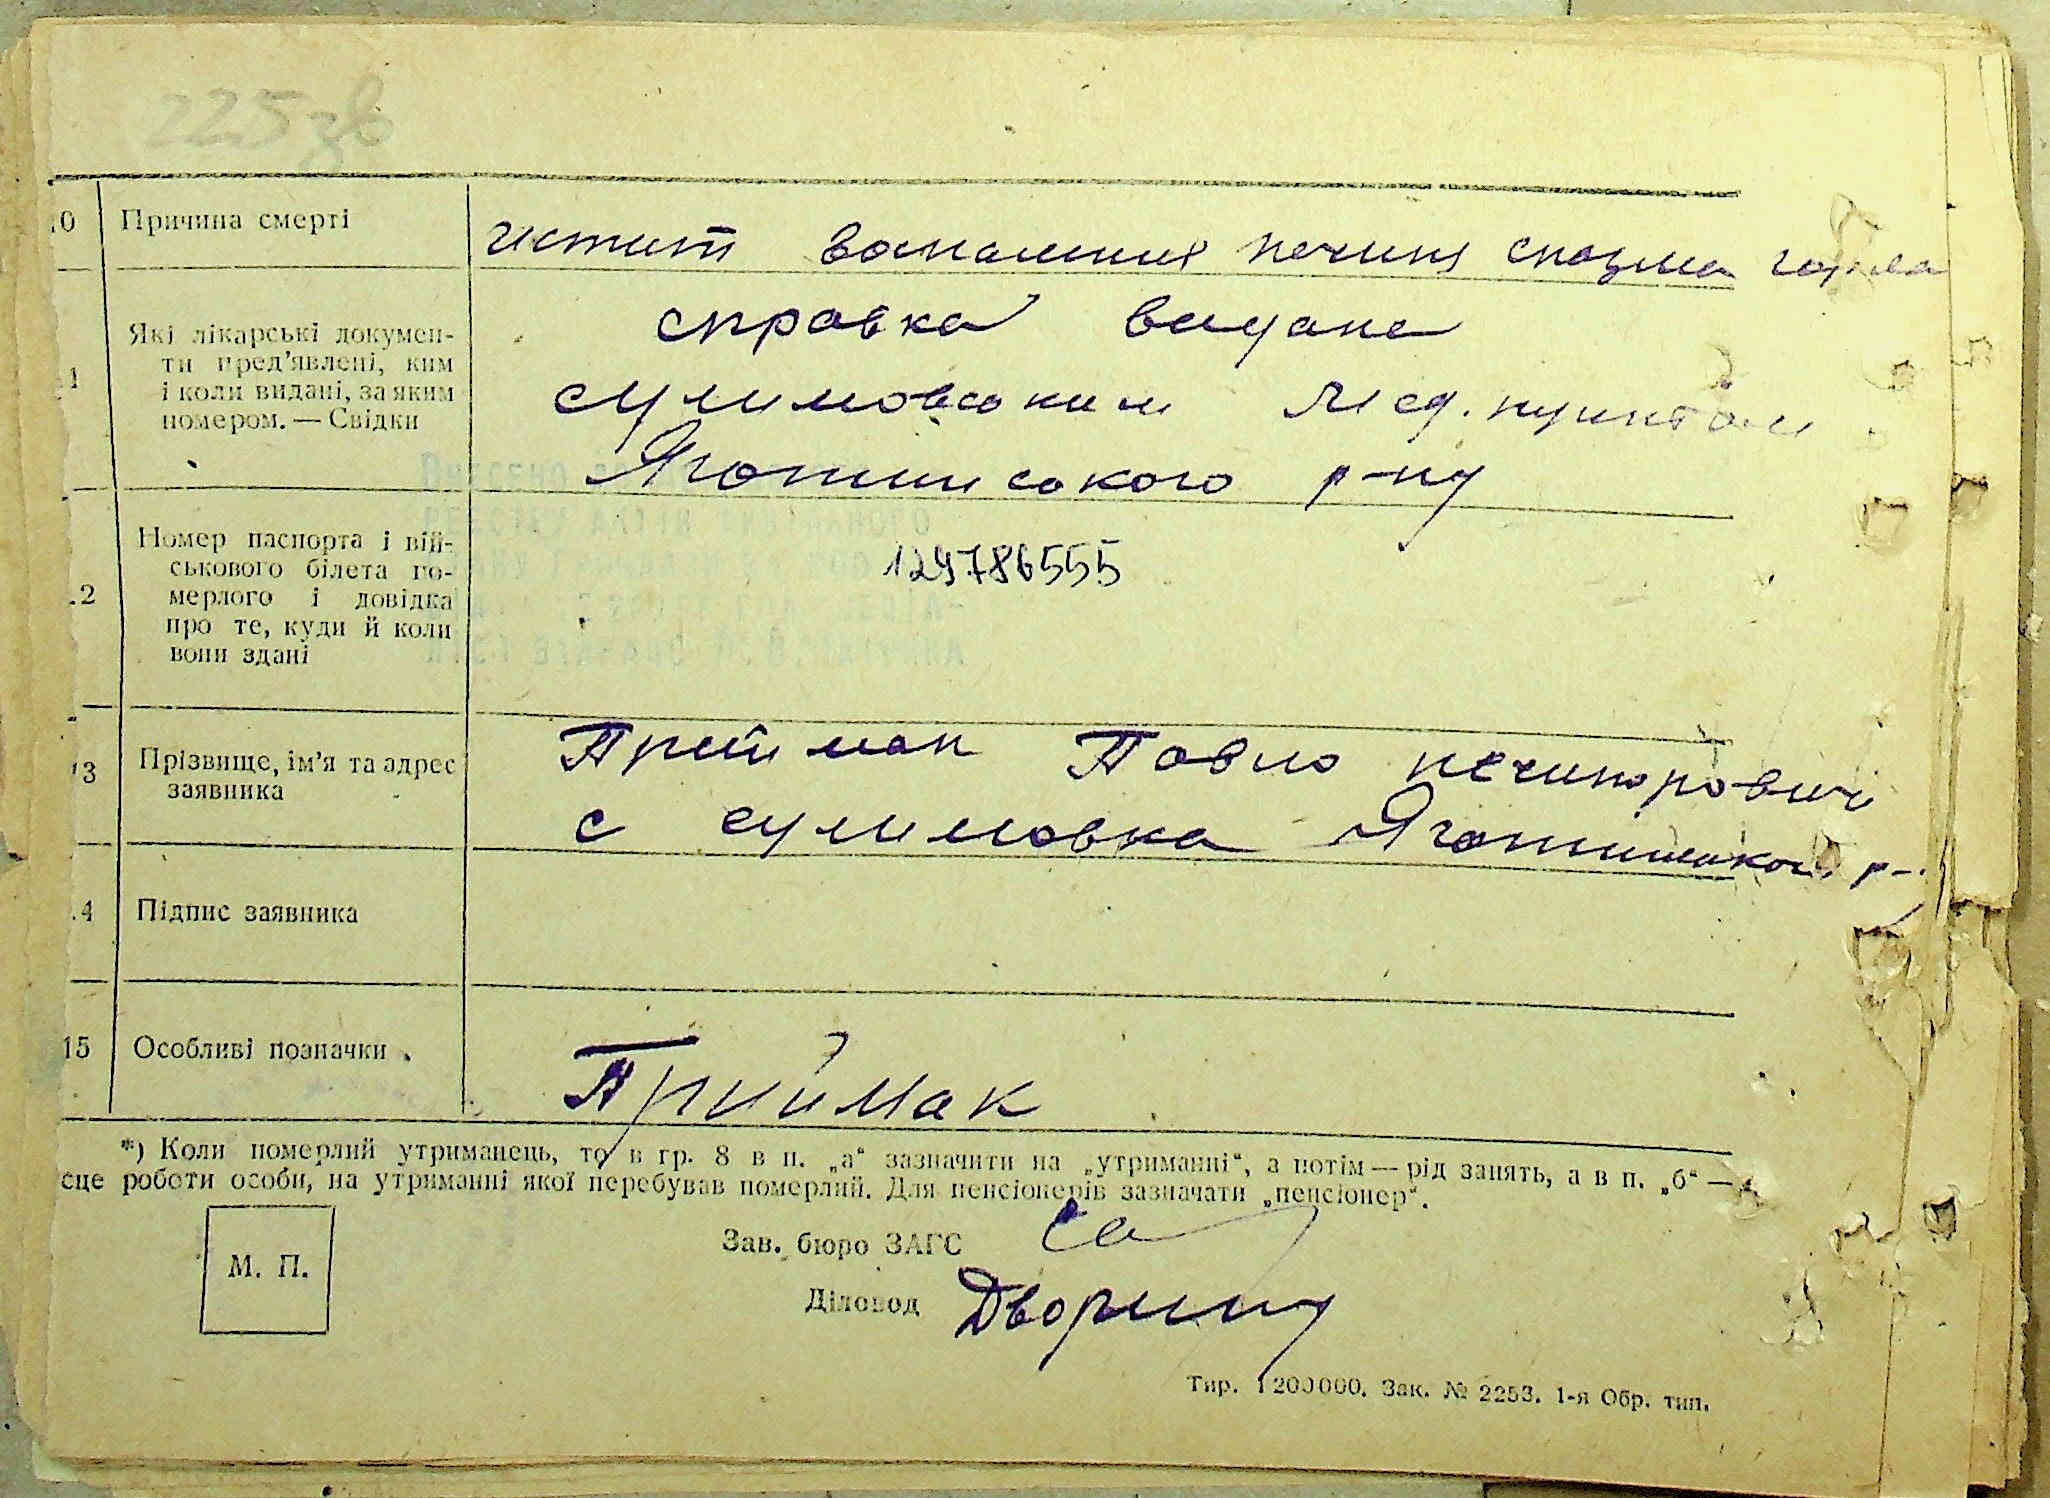 225 зв
10 Причина смерті
чистит воспаления печини спазма горла
11 Які лікарські докумен-
ти пред’явлені, ким
і коли видані, за яким
номером. — Свідки
справка видане
сулимовским мед. пунктом
Яготинського р-ну
12 Номер паспорта і вій-
ськового білета по-
мерлого і довідка
про те, куди й коли
вони здані
129786555
13 Прізвище, ім’я та адрес
заявника
Приймак Павло нечипорович
с сулимовка Яготинського р-
14 Підпис заявника
15 Особливі позначки
Приймак
*) Коли померлий утриманець, то в гр. 8 в п. „а“ зазначити на „утриманні“, а потім — рід занять, а в п. „б“ —
сце роботи особи, на утриманні якої перебував померлий. Для пенсіонерів зазначати „пенсіонер“.
М. П.
Зав. бюро ЗАГС
Діловод
Тир. 1200000. Зак. № 2253. 1-я Обр. тип.